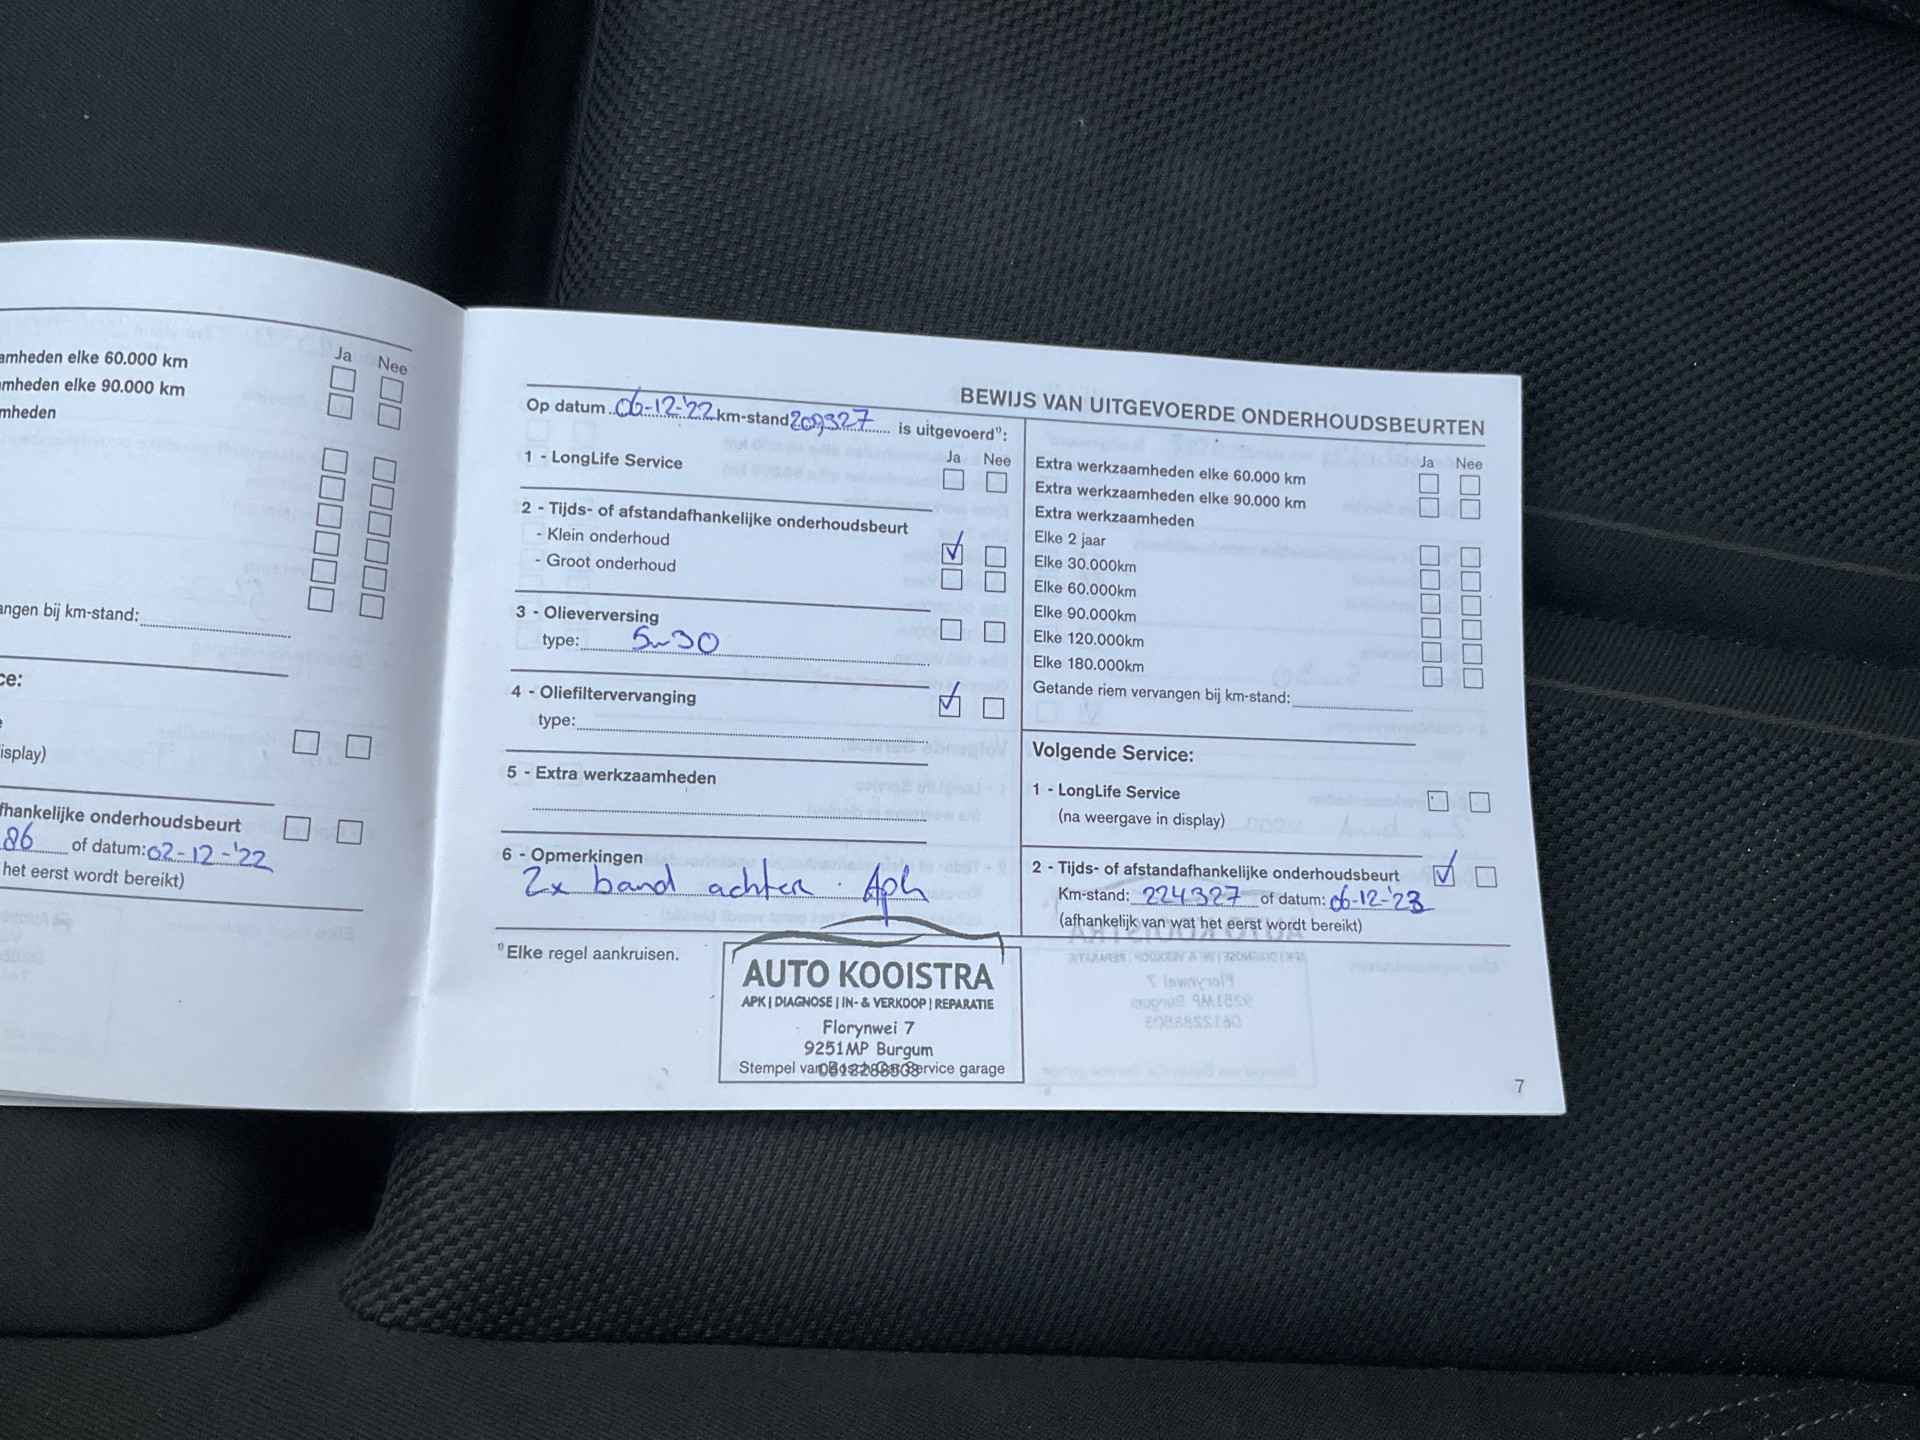 amheden elke 60.000 km
Ja Nee
mheden elke 90.000 km
mheden
angen bij km-stand:
ce:
isplay)
fhankelijke onderhoudsbeurt
86 of datum: 02-12-'22
het eerst wordt bereikt)
BEWIJS VAN UITGEVOERDE ONDERHOUDSBEURTEN
Op datum 06-12-'22 km-stand 209327 is uitgevoerd⁰:
Ja Nee
1 - LongLife Service
2 - Tijds- of afstandafhankelijke onderhoudsbeurt
- Klein onderhoud
- Groot onderhoud
3 - Olieverversing
type: 5w30
4 - Oliefiltervervanging
type:
5 - Extra werkzaamheden
6 - Opmerkingen
2x band achter. Apk
⁰ Elke regel aankruisen.
AUTO KOOISTRA
APK | DIAGNOSE | IN- & VERKOOP | REPARATIE
Florynwei 7
9251MP Burgum
Stempel van Bosch Car Service garage
Ja Nee
Extra werkzaamheden elke 60.000 km
Extra werkzaamheden elke 90.000 km
Extra werkzaamheden
Elke 2 jaar
Elke 30.000km
Elke 60.000km
Elke 90.000km
Elke 120.000km
Elke 180.000km
Getande riem vervangen bij km-stand:
Volgende Service:
1 - LongLife Service
(na weergave in display)
2 - Tijds- of afstandafhankelijke onderhoudsbeurt
Km-stand: 224327 of datum: 06-12-'23
(afhankelijk van wat het eerst wordt bereikt)
7